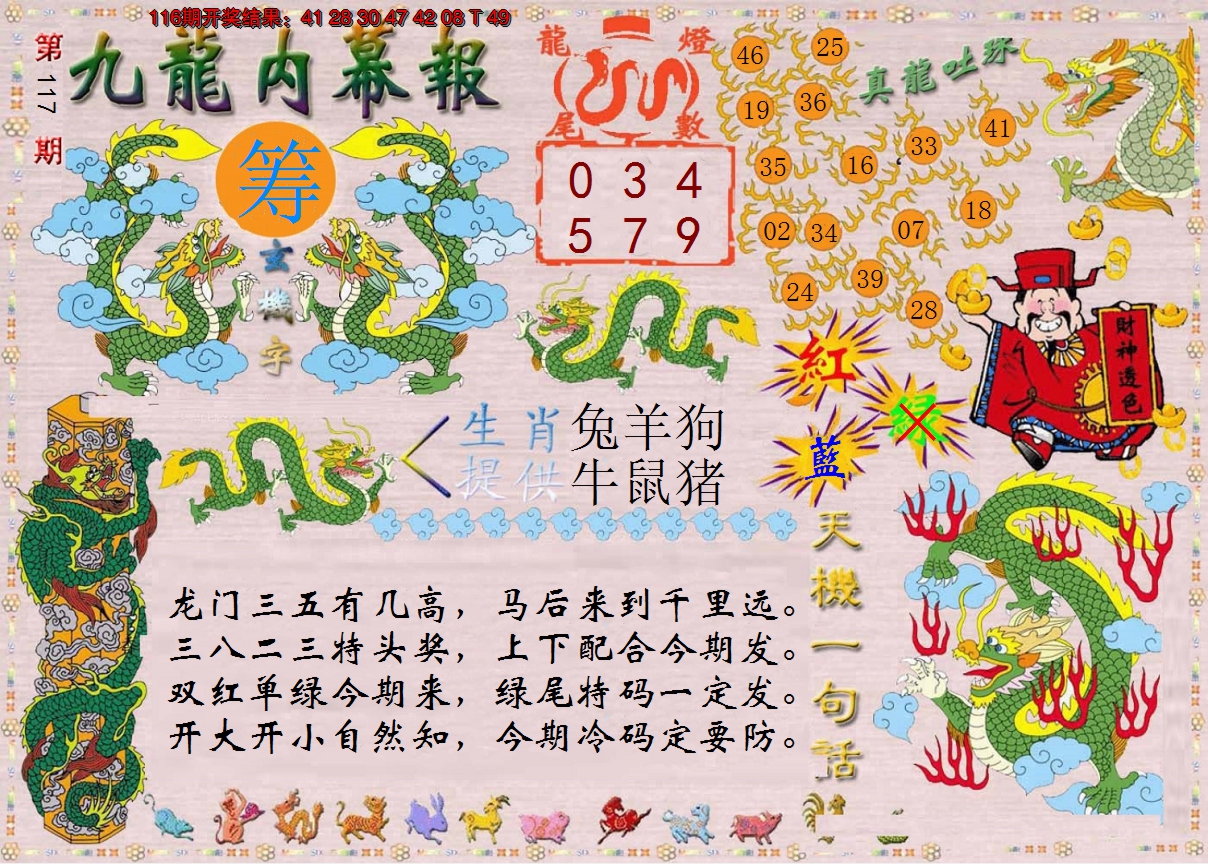 116期开奖结果：41 28 30 47 42 08 T 49
第117期
九龍内幕報
筹
玄機字
龍燈
尾數
0 3 4
5 7 9
真龍吐珠
46 25
19 36
35 16 33 41
02 34 07 18
24 39 28
財神透色
紅
绿
藍
生肖 兔羊狗
提供 牛鼠猪
龙门三五有几高，马后来到千里远。
三八二三特头奖，上下配合今期发。
双红单绿今期来，绿尾特码一定发。
开大开小自然知，今期冷码定要防。
天機一句話